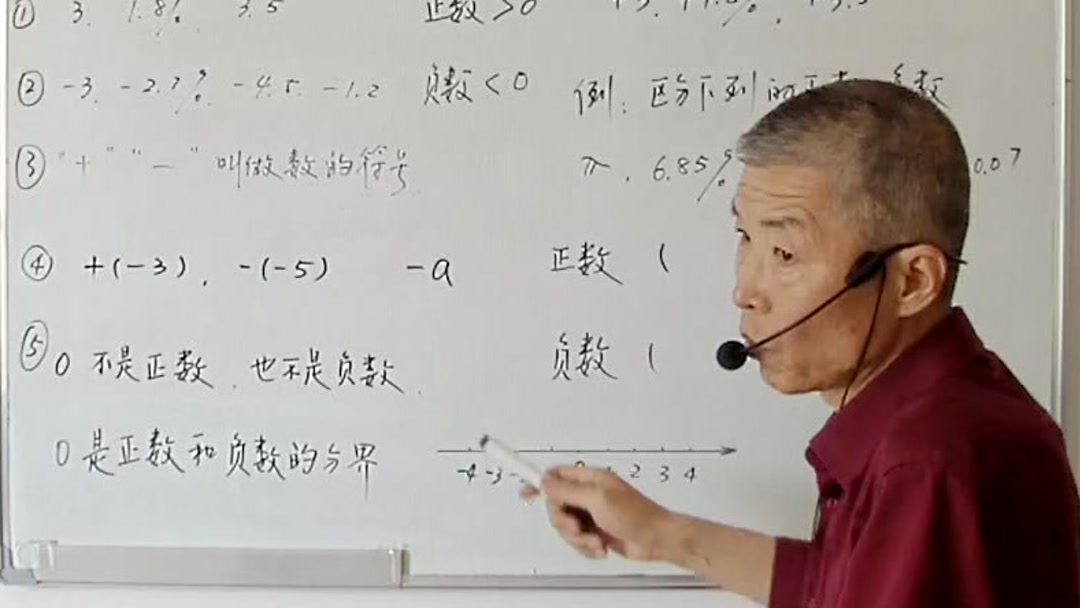 ① 3. 1.8%. 3.5 正数>0
② -3. -2.7%. -4.5. -1.2 负数<0 例: 区分下列的正数 负数
③ "+" "-" 叫做数的符号. π. 6.85% 0.07
④ +(-3). -(-5) -a 正数 (
⑤ 0 不是正数. 也不是负数. 负数 (
0 是正数和负数的分界
-4 -3 2 3 4